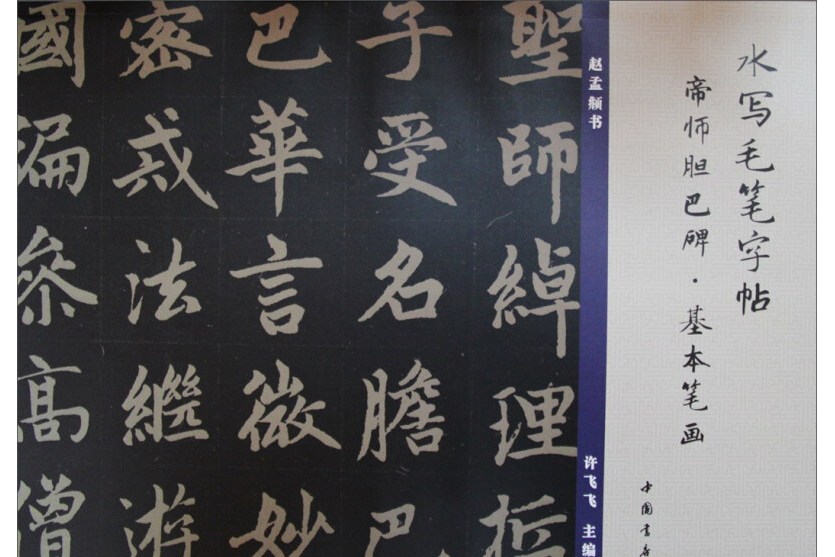 水写毛笔字帖
帝师胆巴碑·基本笔画
中国书店
赵孟頫书
许飞飞 主编
聖師綽理哲
子受名膽巴
巴華言微妙
密戒法繼遊
國漏叅高僧